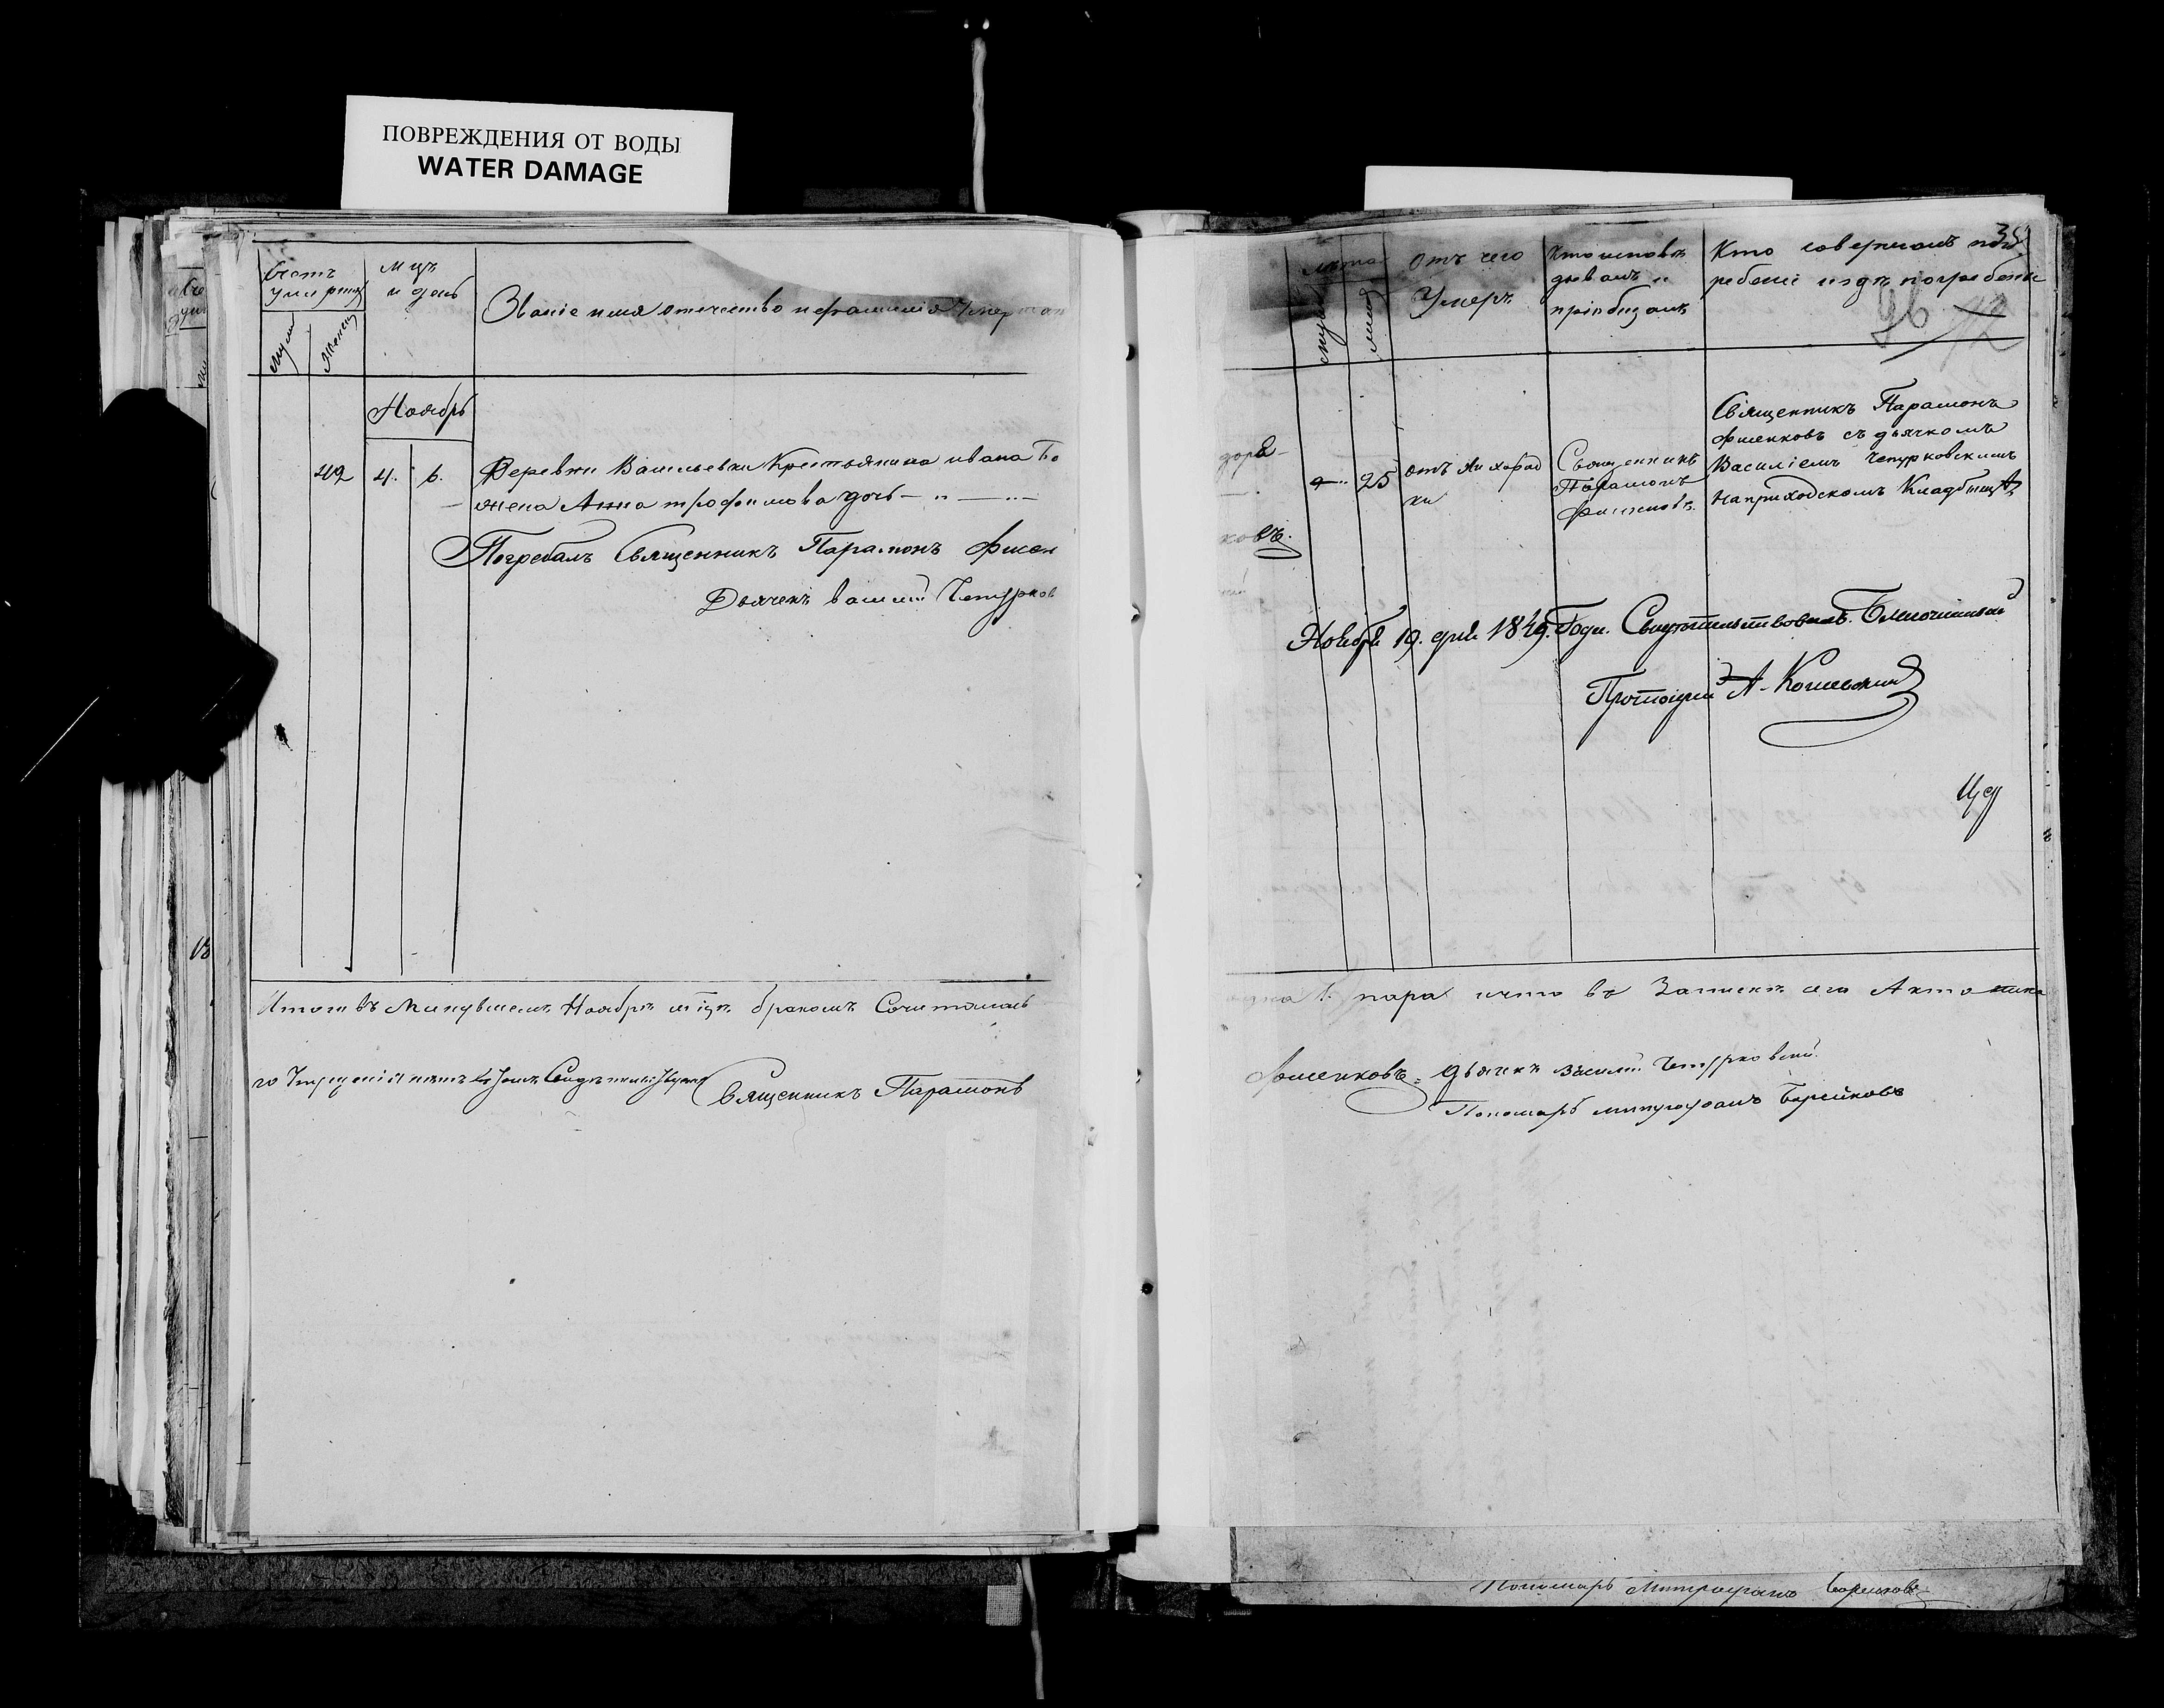 ПОВРЕЖДЕНИЯ ОТ ВОДЫ
WATER DAMAGE
Счетъ
умерших
муж
женск
м ца
и день
Званіе имя отечество и фамилія Умерша
Ноябрь
42 4. 6. Деревни Васильевки Крестьянина ивана Бо
жена Анна трофимова дочь
Погребалъ Священникъ Парамонъ Фисен
Дьячекъ василій Чепурков
Итого въ Минувшемъ Ноябрѣ м цѣ бракомъ Сочеталась
Священникъ Парамонъ
35
лѣта
муж
женск
Отъ чего
Умеръ
Кто исповѣ
дывалъ и
пріобщалъ
Кто совершалъ пог
ребеніе и гдѣ погребены
96
72
дора
25
отъ Лихорад
ки
Священникъ
Парамонъ
Фисенковъ.
Священникъ Парамонъ
Фисенковъ съ дьячкомъ
Василіемъ Чепурковскимъ
на приходскомъ Кладбищѣ
ковъ.
Ноября 19. дня 1849. Года. Свидетельствовалъ. Благочинный
Протоіерей А.
1. пара что въ Записки сего Акта
Фисенковъ дьячекъ Василій Чепурковскій
Пономарь митрофанъ Борейковъ
Пономарь Митрофанъ